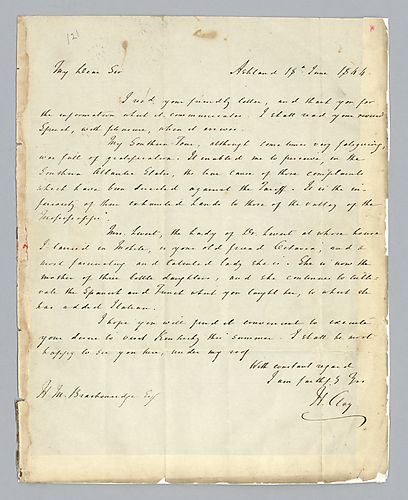 121
My Dear Sir Ashland 18th June 1844.
I recd. your friendly letter, and thank you for
the information which it communicates. I shall read your revised
Speech, with pleasure, when it arrives.
My Southern Tour, although sometimes very fatiguing,
was full of gratification. It enabled me to perceive, in the
Southern Atlantic States, the true cause of those complaints
which have been directed against the Tariff. It is the in-
feriority of their exhausted lands to those of the valley of the
Mississippi.
Mrs. Levert, the Lady of Dr. Levert at whose house
I tarried in Mobile, is your old friend Octavia; and a
most fascinating and talented lady she is. She is now the
mother of three little daughters, and she continues to culti-
vate the Spanish and French which you taught her, to which she
has added Italian.
I hope you will find it convenient to execute
your desire to visit Kentucky this summer. I shall be most
happy to see you here, under my roof.
With constant regard
I am faithfy. Yrs
H. Clay
H. M. Brackenridge Esq